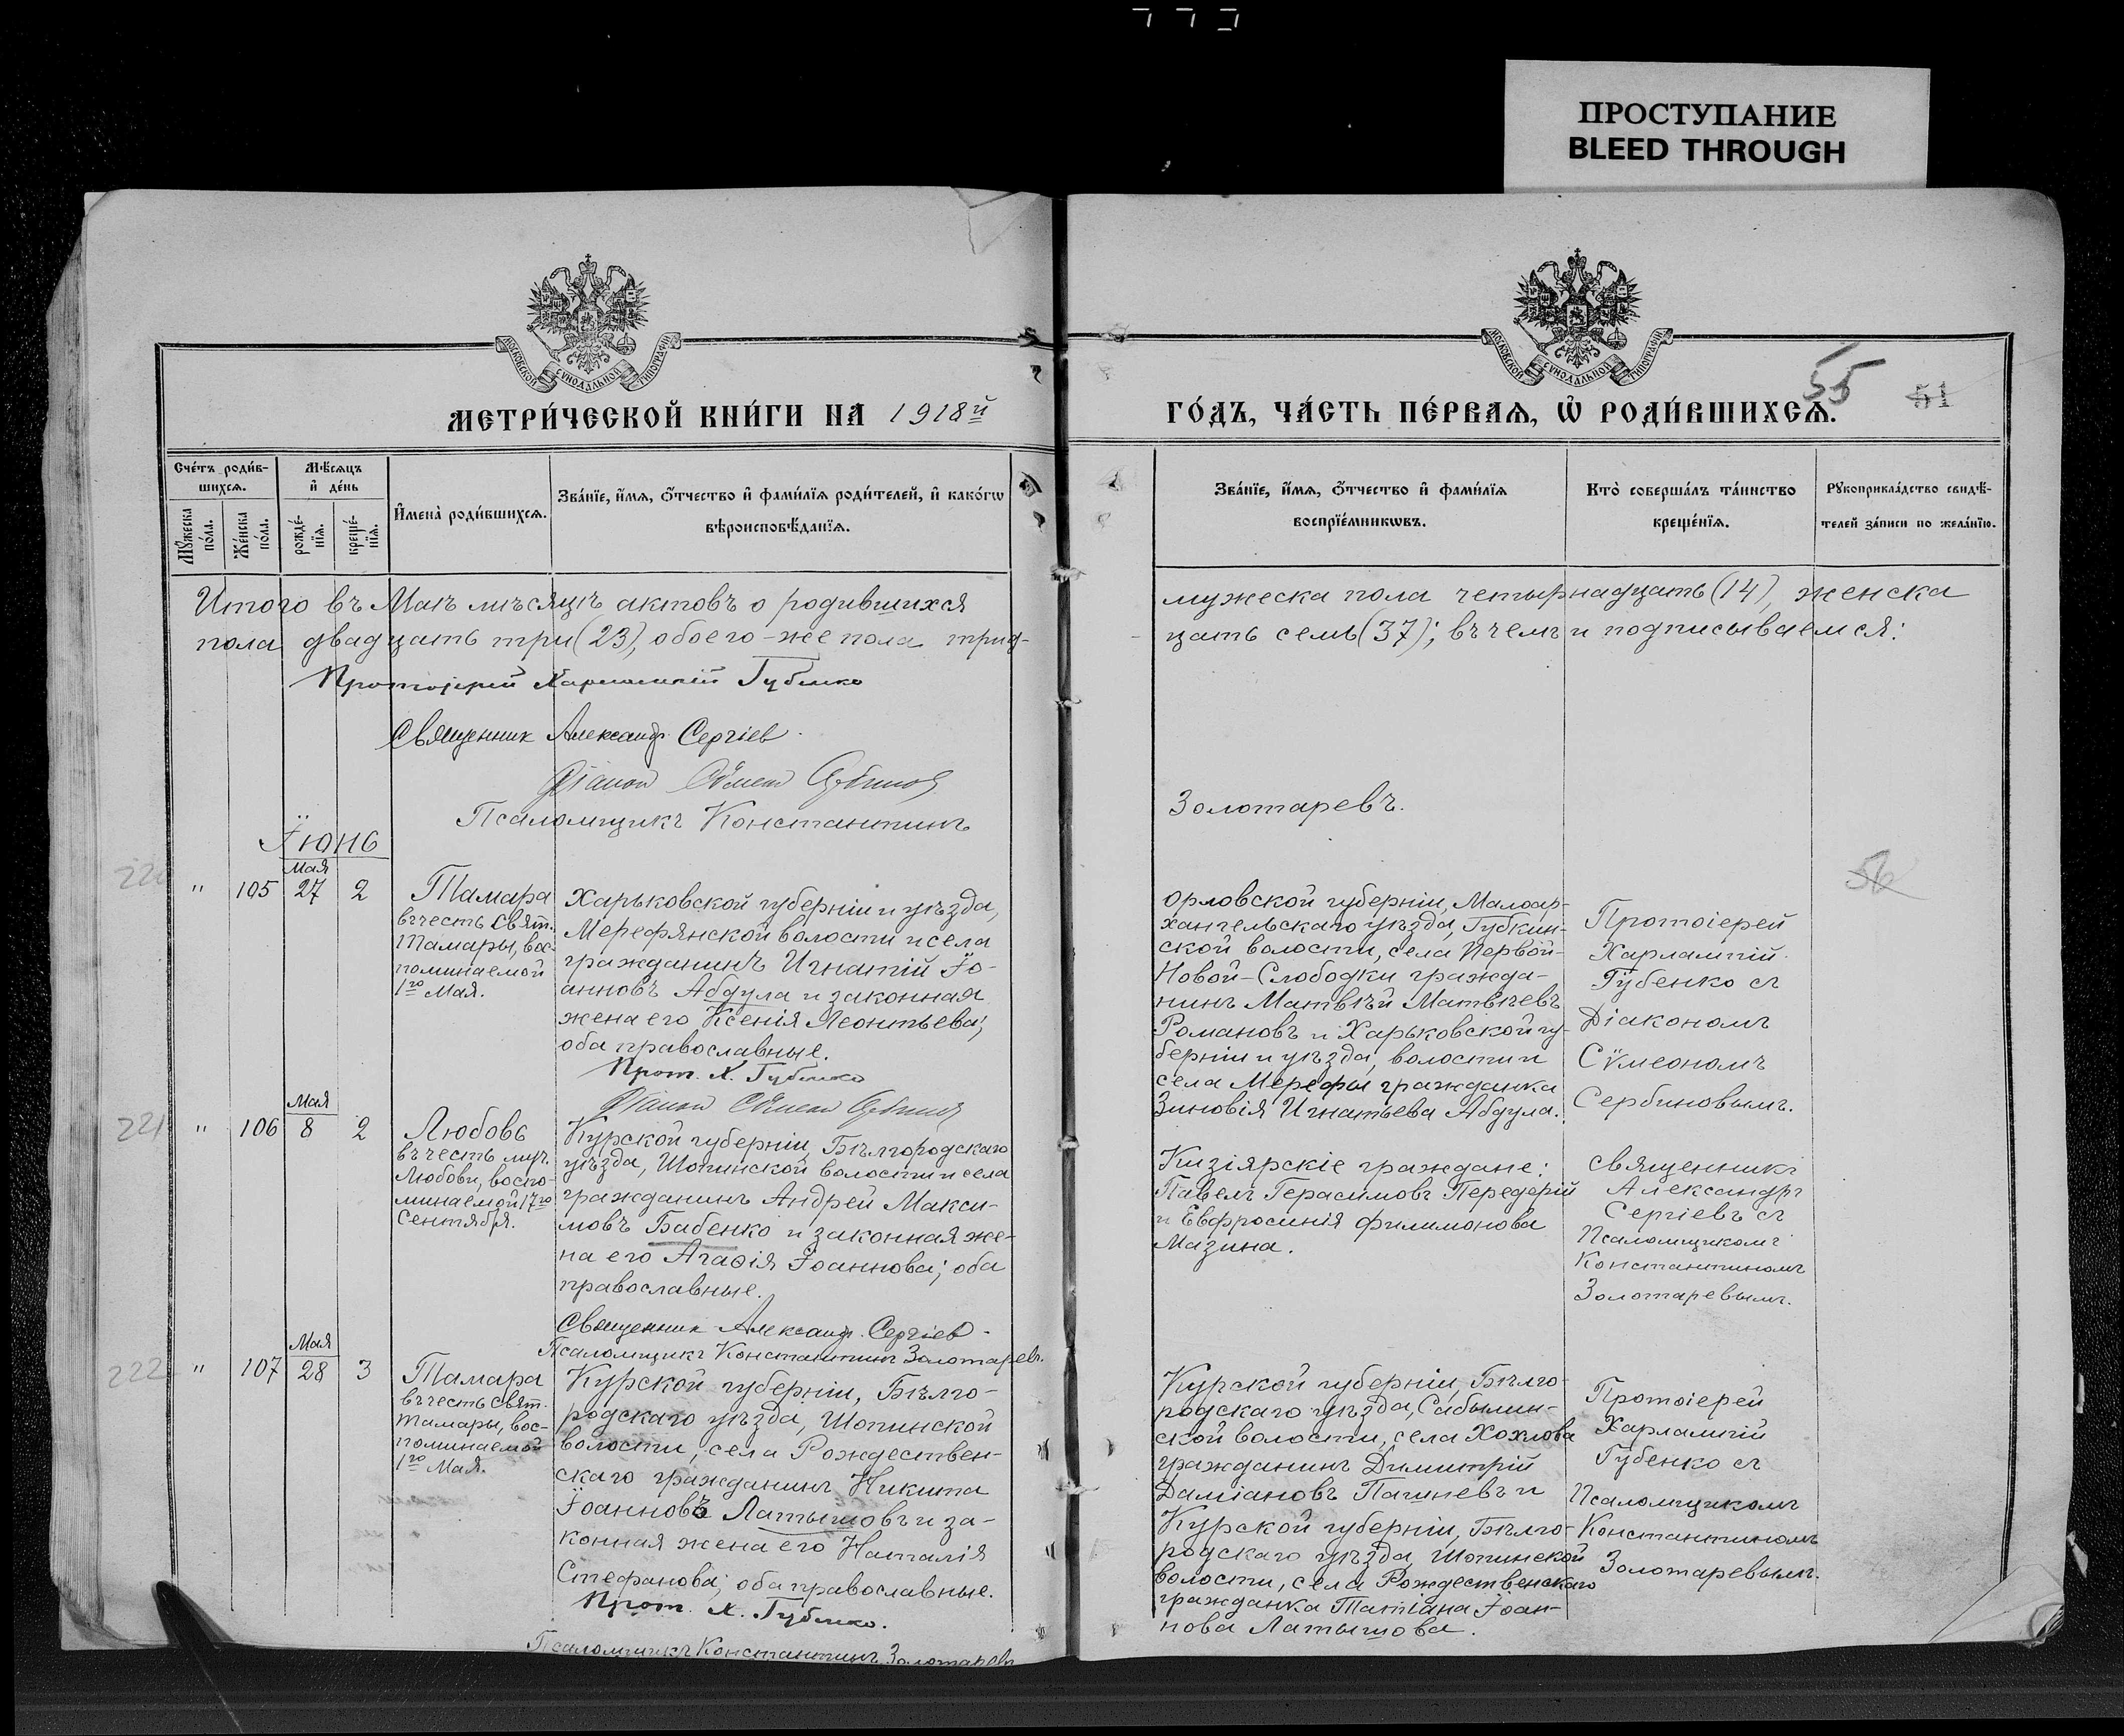 ПРОСТУПАНИЕ
BLEED THROUGH
МОСКОВСКОЙ СѴНОДАЛЬНОЙ ТИПОГРАФІИ
МЕТРИ́ЧЕСКОЙ КНИ́ГИ НА 1918й
Сче́тъ роди́в-
шихсѧ.
Мѣ́сяцъ
и҆ де́нь
Мꙋ́жеска
по́ла.
Же́нска
по́ла.
рожде́-
нїѧ.
креще́-
нїѧ.
И҆мена̀ роди́вшихсѧ.
Зва́нїе, и҆́мѧ, ѻ҆́тчество и҆ фами́лїѧ роди́телей, и҆ како́гѡ
вѣроисповѣ́данїѧ.
Итого въ Маѣ мѣсяцѣ актовъ о родившихся
пола двадцать три (23), обоего-же пола трид-
Протоіерей Харлампій Губенко
Священник Александр Сергіев.
Псаломщикъ Константинъ
Іюнь
220
"
105
Мая
27
2
Тамара
въ честь Свят.
Тамары, вос-
поминаемой
1го Мая.
Харьковской губерніи и уѣзда,
Мерефянской волости и села
гражданинъ Игнатій Іо-
анновъ Абдула и законная
жена его Ксенія Леонтьева;
оба православные.
Прот. Х. Губенко
221
"
106
Мая
8
2
Любовь
въ честь муч.
Любови, воспо-
минаемой 17го
Сентября.
Курской губерніи, Бѣлгородскаго
уѣзда, Шопинской волости и села
гражданинъ Андрей Макси-
мовъ Бабенко и законная же-
на его Агаѳія Іоаннова; оба
православные.
Священник Александр Сергіев.
Псаломщикъ Константинъ Золотаревъ.
222
"
107
Мая
28
3
Тамара
въ честь Свят.
Тамары, вос-
поминаемой
1го Мая.
Курской губерніи, Бѣлго-
родскаго уѣзда, Шопинской
волости, села Рождествен-
скаго гражданинъ Никита
Іоанновъ Латышовъ и за-
конная жена его Наталія
Стефанова; оба православные.
Прот. Х. Губенко.
Псаломщикъ Константинъ Золотаревъ
МОСКОВСКОЙ СѴНОДАЛЬНОЙ ТИПОГРАФІИ
55
51
ГО́ДЪ, ЧА́СТЬ ПЕ́РВАѦ, Ѡ҆ РОДИ́ВШИХСѦ.
Зва́нїе, и҆́мѧ, ѻ҆́тчество и҆ фами́лїѧ
воспрїе́мникѡвъ.
Кто̀ соверша́лъ та́инство
креще́нїѧ.
Рꙋкоприкла́дство свидѣ́-
телей за́писи по жела́нїю.
мужеска пола четырнадцать (14), женска
цать семь (37); въ чемъ и подписываемся:
Золотаревъ.
56
Орловской губерніи, Малоар-
хангельскаго уѣзда, Губкин-
ской волости, села Первой-
Новой-Слободки гражда-
нинъ Матвѣй Матвѣевъ
Романовъ и Харьковской гу-
берніи и уѣзда, волости и
села Мерефы гражданка
Зиновія Игнатьева Абдула.
Протоіерей
Харлампій
Губенко съ
Діакономъ
Сѵмеономъ
Сербиновымъ.
Кизіярскіе граждане:
Павелъ Герасимовъ Передерій
и Евфросинія Филимонова
Мазина.
Священникъ
Александръ
Сергіевъ съ
Псаломщикомъ
Константиномъ
Золотаревымъ.
Курской губерніи, Бѣлго-
родскаго уѣзда, Сабынин-
ской волости, села Хохлова
гражданинъ Димитрій
Даміановъ Пашневъ и
Курской губерніи, Бѣлго-
родскаго уѣзда, Шопинской
волости, села Рождественскаго
гражданка Татіана Іоан-
нова Латышова.
Протоіерей
Харлампій
Губенко съ
Псаломщикомъ
Константиномъ
Золотаревымъ.